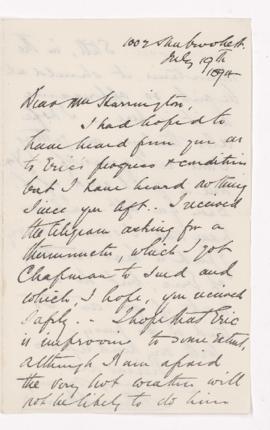 1002 Sherbrooke St.
July 19th
1894
Dear Mrs Harrington,
I had hoped to
have heard from you as
to Eric's progress & condition
but I have heard nothing
since you left. I received
the telegram asking for a
thermometer, which I got
Chapman to send and
which, I hope, you received
safely. I hope that Eric
is improving to some extent,
although I am afraid
the very hot weather will
not be likely to do him